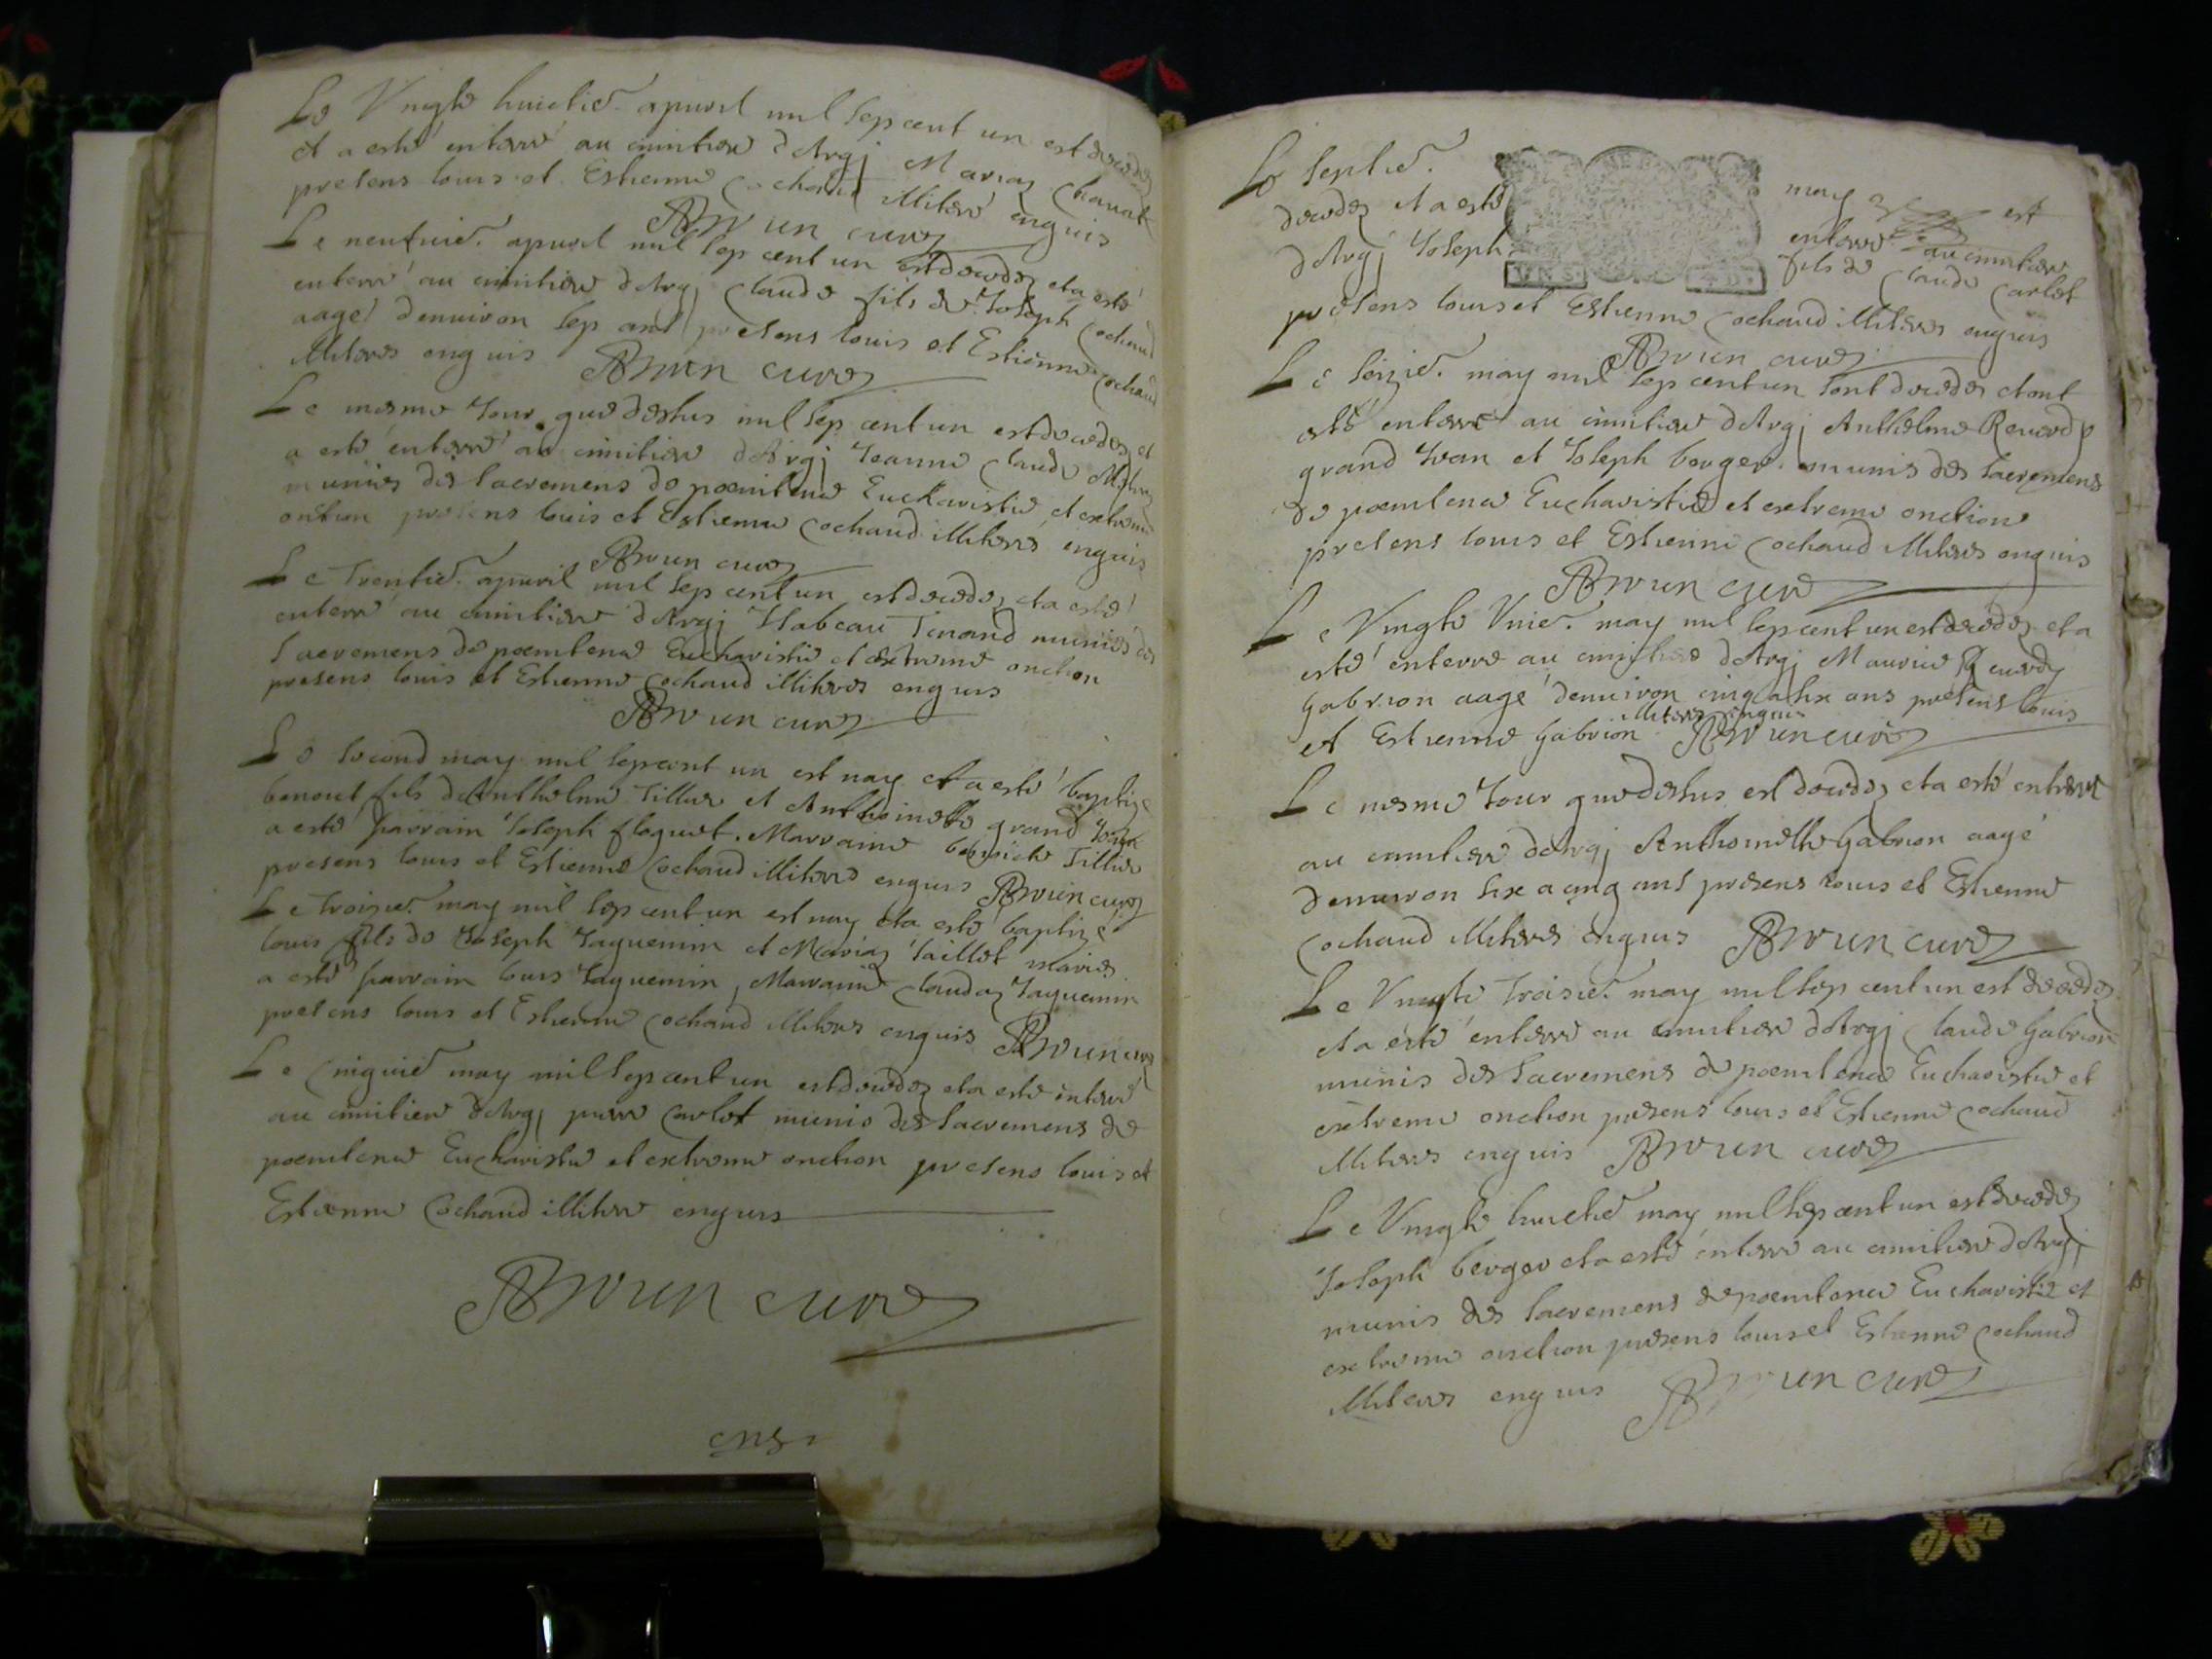 Le Vingte huictie. apuril mil sep cent un est decedez
et a esté enterré au cimitiere d'Argj Mariaz Chanat
presens louis et Estienne Cochaud illiteré enquis
ABrun curez
Le neufvie. apuril mil sep cent un est decedez et a esté
enterré au cimitiere d'Argj Claude fils de Joseph Cochaud
aagé denuiron sep ans presens louis et Estienne Cochaud
illiteres enquis ABrun curez
Le mesme Jour que dessus mil sep cent un est decedez et
a esté enterré au cimitiere d'Argj Jeanne Claude
munies des sacremens de poenitence Euckaristie et extreme
onction presens louis et Estienne Cochaud illiterés enquis
ABrun curez
Le Trentie. apuril mil sep cent un est decedez et a esté
enterré au cimitiere d'Argj Isabeau Tenand munies des
sacremens de poenitence Eucharistie et extreme onction
presens louis et Estienne Cochaud illiteres enquis
ABrun curez
Le second may mil sep cent un est nay et a esté baptizé
benoict fils d'Anthelme Tillier et Anthoinette grand Jean
a esté parrain Joseph floquet. Marraine benoicte Tillier
presens louis et Estienne Cochaud illiteres enquis ABrun curez
Le Troizie. may mil sep cent un est nay et a esté baptizé
louis fils de Joseph Jaquemin et Mariaz taillet mariés
a esté parrain louis Jaquemin, Marraine Claudaz Jaquemin
presens louis et Estienne Cochaud illiteres enquis ABrun curez
Le Cinquie may mil sep cent un est decedez et a esté enterré
au cimitiere d'Argj pierre Carlot munis des sacremens de
poenitence Eucharistie et extreme onction presens louis et
Estienne Cochaud illiteré enquis
ABrun curez
Le septie. may est
decedez et a esté enterré au cimitiere
d'Argj Joseph fils de Claude Carlot
presens louis et Estienne Cochaud illiteres enquis
ABrun curez
Le seizie. may mil sep cent un sont decedez et ont
esté enterré au cimitiere d'Argj Anthelme Reuerdy
grand Jean et Joseph berger. munis des sacremens
de poenitence Eucharistie et extreme onction
presens louis et Estienne Cochaud illiteres enquis
ABrun curé
Le Vingte Vnie. may mil sep cent un est decedez et a
esté enterré au cimitiere d'Argj Maurice Reuerdy
Gabrion aagé denuiron cinq a six ans presens louis
et Estienne Gabrion illiteres enquis ABrun curez
Le mesme Jour que dessus est decedez et a esté enterré
au cimitiere d'Argj Anthoinette Gabrion aagé
denuiron six a cinq ans presens louis et Estienne
Cochaud illiteres enquis ABrun curez
Le Vingte Troisie. may mil sep cent un est decedez
et a esté enterré au cimitiere d'Argj Claude Gabrion
munis des sacremens de poenitence Eucharistie et
extreme onction presens louis et Estienne Cochaud
illiteres enquis ABrun curez
Le Vingte huictie may mil sep cent un est decedez
Joseph berger et a esté enterré au cimitiere d'Argj
munis des sacremens de poenitence Eucharistie et
extreme onction presens louis et Estienne Cochaud
illiteres enquis ABrun curez